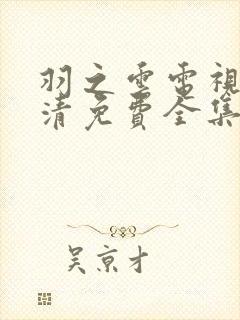 羽之雲電視
清免費全集
吴京才